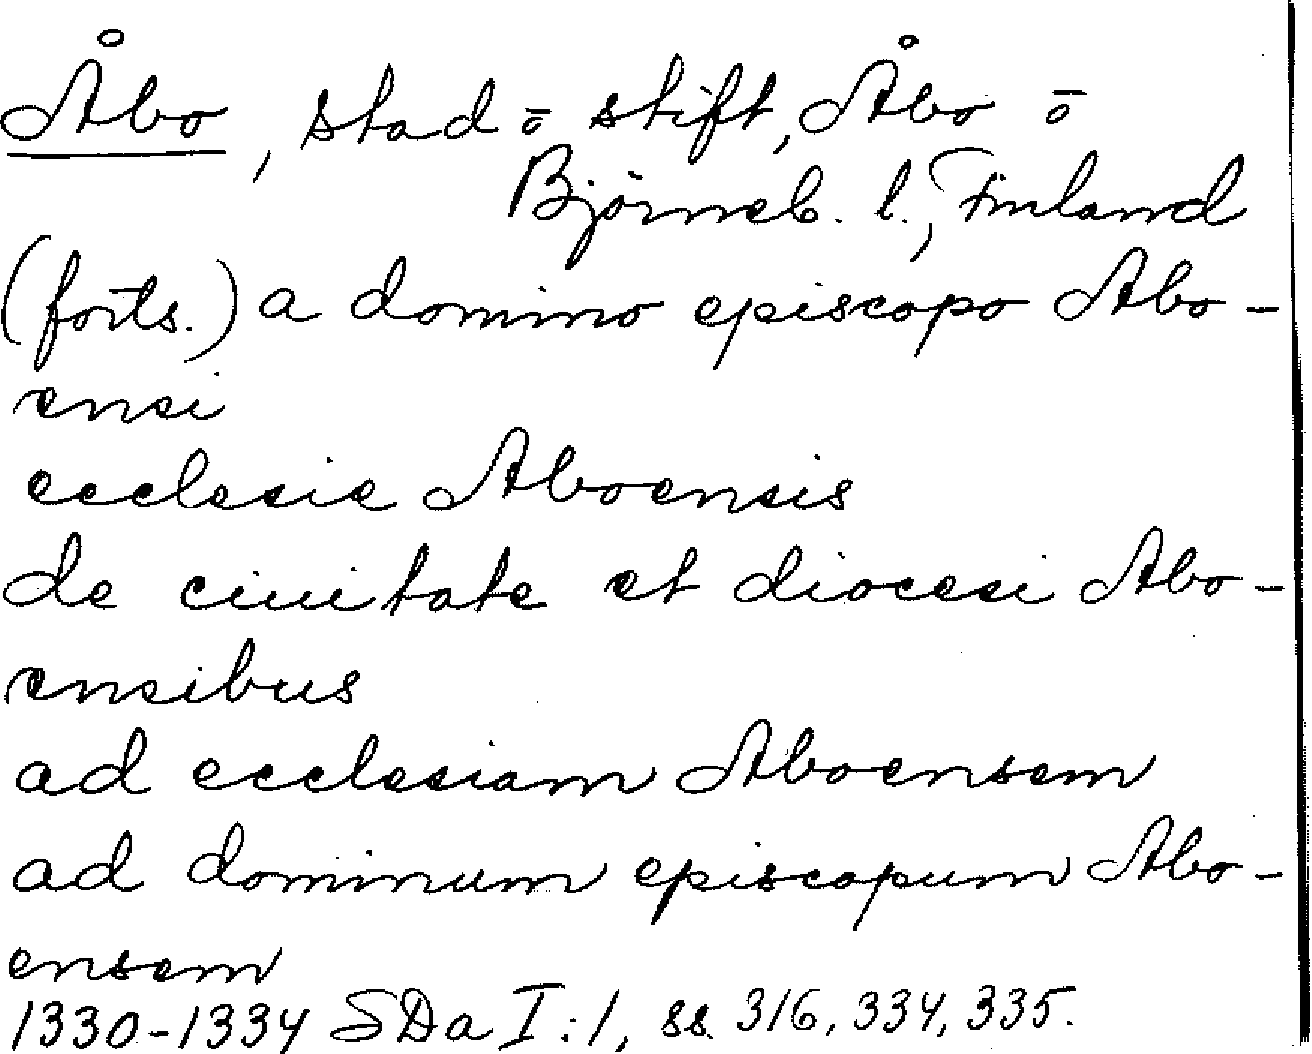 Åbo, stad ō stift, Åbo ō
Björneb. l., Finland
(forts.) a domino episcopo Abo-
ensi
ecclesie Aboensis
de ciuitate et diocesi Abo-
ensibus
ad ecclesiam Aboensem
ad dominum episcopum Abo-
ensem
1330-1334 SDa I:1, ss. 316, 334, 335.